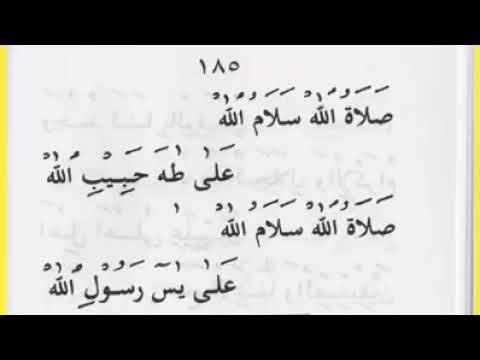 ١٨٥
صَلَاةُ اللهْ سَلَامُ اللهْ
عَلَى طٰهَ حَبِيبِ اللهْ
صلاة الله سلام الله
عَلَى يٰسٓ رَسُولِ اللهْ